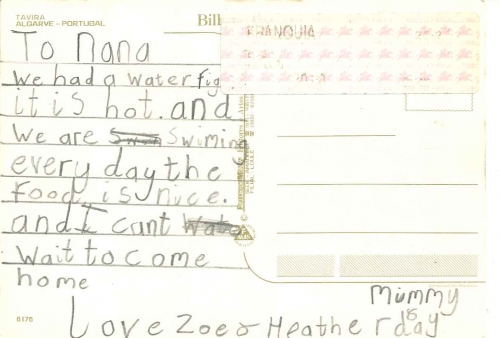 TAVIRA
ALGARVE - PORTUGAL
Bill
FRANQUIA
To Nana
we had a water fig
it is hot. and
we are swiming
every day the
Food is nice.
and I cant
wait to come
home
Mummy
Love Zoe & Heather
6176